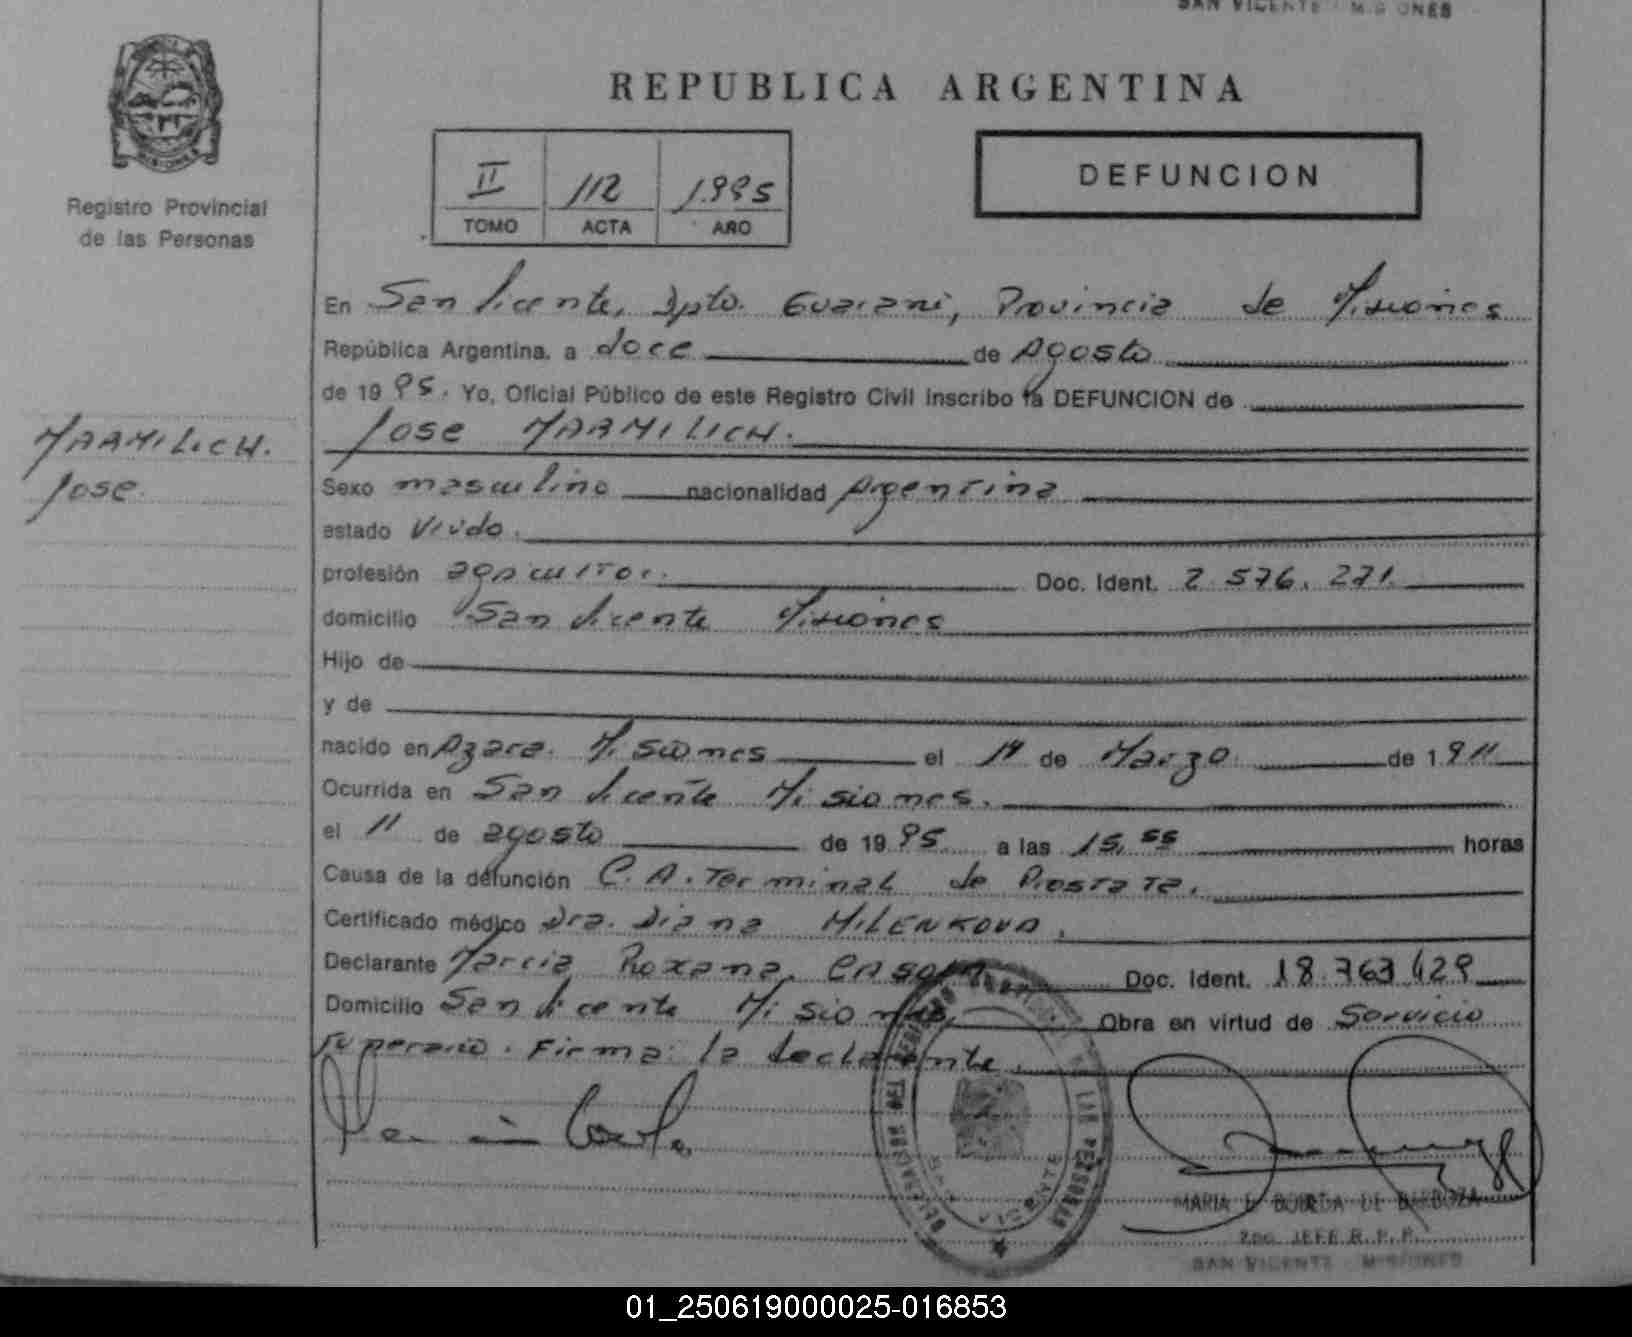 SAN VICENTE - MISIONES
REPUBLICA ARGENTINA
MISIONES
Registro Provincial
de las Personas
II 112 1.995
TOMO ACTA AÑO
DEFUNCION
En San Vicente, Dpto. Guarani, Provincia de Misiones
República Argentina, a doce de Agosto
de 19 95. Yo, Oficial Público de este Registro Civil inscribo la DEFUNCION de
Jose MARMILICH.
MARMILICH.
Jose
Sexo masculino nacionalidad Argentina
estado Viudo.
profesión agricultor. Doc. Ident. 2.576.271.
domicilio San Vicente Misiones
Hijo de
y de
nacido en Azara. Misiones el 19 de Marzo de 1911
Ocurrida en San Vicente Misiones.
el 11 de agosto de 19 95 a las 15,55 horas
Causa de la defunción C.A. Terminal de Prostata.
Certificado médico Dra. Diana MILENKOVA.
Declarante Marcia Roxana Doc. Ident. 18.763.429
Domicilio San Vicente Misiones, Obra en virtud de Servicio
Funerario. Firma: la declarante.
SAN VICENTE
MARIA E. BOBEDA DE BARBOZA
2do. JEFE R. P. P.
SAN VICENTE - MISIONES
01_250619000025-016853